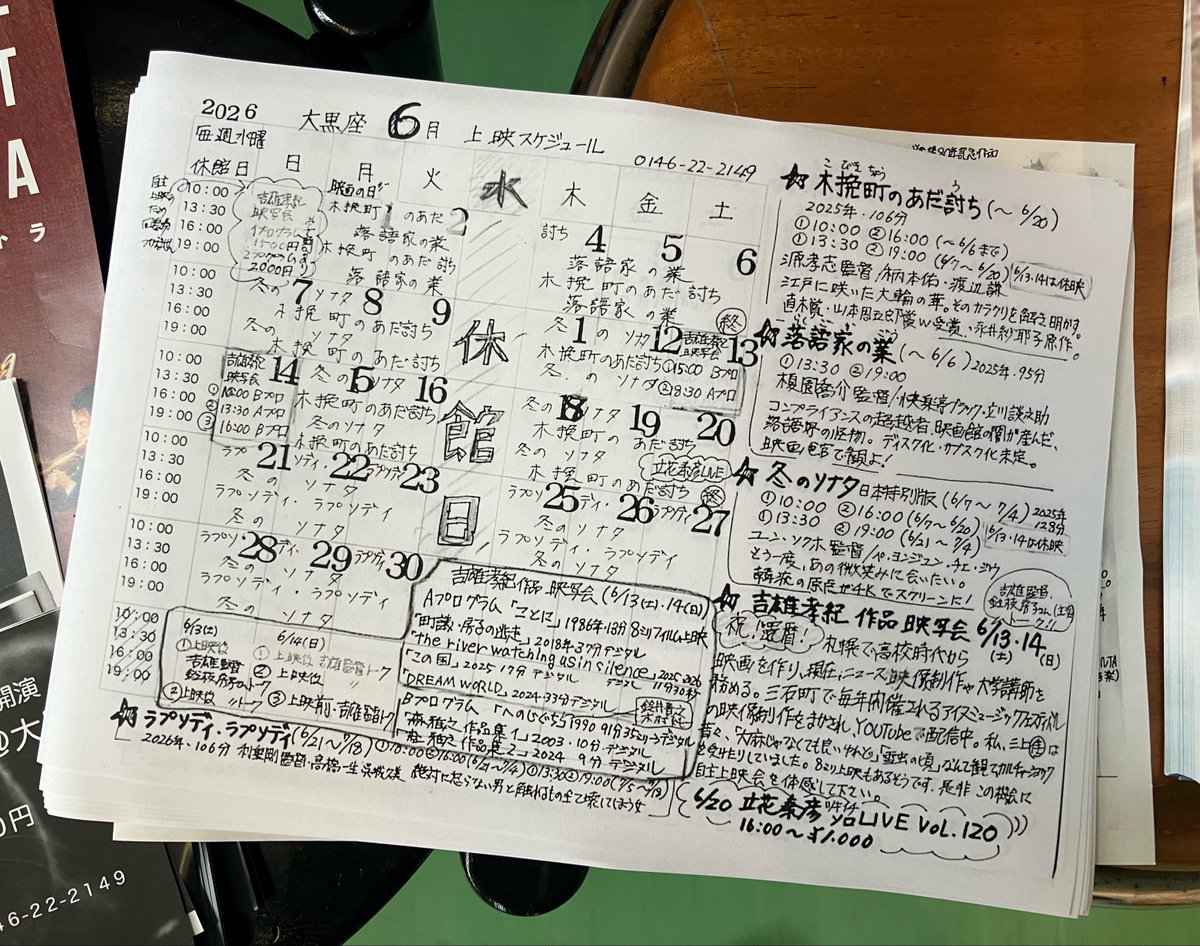 2026 大黒座 6月 上映スケジュール 0146-22-2149
毎週水曜
休館日 日 月 火 水 木 金 土
10:00
13:30
16:00
19:00
吉雄孝紀
映写会
1プログラム
1500円
2プログラム
2000円
映画の日
木挽町 1 のあだ 2 討ち 4 5 6
落語家の業 落語家の業
木挽町のあだ討ち 木挽町のあだ討ち
落語家の業 落語家の業 終
10:00
13:30
16:00
19:00
7 8 9 11 12 13
冬のソナタ 冬のソナタ
木挽町のあだ討ち 木挽町のあだ討ち
冬のソナタ 冬のソナタ
木挽町のあだ討ち
吉雄孝紀
映写会
①15:00 Bプロ
②18:30 Aプロ
10:00
13:30
16:00
19:00
14 15 16 18 19 20
吉雄孝紀
映写会
①10:00 Bプロ
②13:30 Aプロ
③16:00 Bプロ
冬のソナタ 冬のソナタ
木挽町のあだ討ち 木挽町のあだ討ち
冬のソナタ 冬のソナタ
木挽町のあだ討ち 木挽町のあだ討ち 終
立花泰彦LIVE
10:00
13:30
16:00
19:00
21 22 23 25 26 27
ラプソディ・ラプソディ ラプソディ・ラプソディ
冬のソナタ 冬のソナタ
ラプソディ・ラプソディ ラプソディ・ラプソディ
冬のソナタ 冬のソナタ
10:00
13:30
16:00
19:00
28 29 30
ラプソディ・ラプソディ
冬のソナタ
ラプソディ・ラプソディ
冬のソナタ
休館日
10:00
13:30
16:00
19:00
6/3(土)
①上映後
吉雄監督
トーク
②上映後 〃トーク
6/14(日)
①上映後 吉雄監督トーク
②上映後 〃
③上映前・吉雄監督トーク
吉雄孝紀作品 映写会 (6/13(土)・14(日))
Aプログラム「ことに」1986年・13分 8ミリフィルム上映
「町議・房子の逃走」2018年・37分 デジタル
「the river watching us in silence」2025-2026 デジタル 11分30秒
「この国」2025・17分 デジタル
「DREAM WORLD」2024・33分 デジタル
Bプログラム「へのじぐち」1990 91分 35ミリ→デジタル
「森雅之 作品集1」2003・10分 デジタル
「森雅之 作品集2」2024 9分 デジタル
☆ラプソディ・ラプソディ(6/21〜7/18) ①10:00 ②16:00(6/21〜7/4) ①13:30 ②19:00(7/5〜7/18)
2026年・106分 利重剛監督・高橋一生 呉城久美 絶対に怒らない男と触れるもの全て壊してしまう女
☆木挽町のあだ討ち(〜6/20)
こびきちょう う
2025年・106分
①10:00 ②16:00(〜6/6まで)
①13:30 ②19:00(6/7〜6/20)
6/13・14は休映
源孝志監督/柄本佑・渡辺謙
江戸に咲いた大輪の華。そのカラクリを解き明かす。
直木賞・山本周五郎賞W受賞、永井紗耶子原作。
☆落語家の業(〜6/6) 2025年・95分
①13:30 ②19:00
榎園喬介監督/快楽亭ブラック・立川談之助
コンプライアンスの超越者、映画館の闇が産んだ、
落語界の怪物。ディスク化・サブスク化未定。
映画館で観よ!
☆冬のソナタ 日本特別版(6/7〜7/4) 2025年 128分
①10:00 ②16:00(6/7〜6/20)
①13:30 ②19:00(6/21〜7/4)
6/13・14は休映
ユン・ソクホ監督/ペ・ヨンジュン・チェ・ジウ
もう一度、あの微笑みに会いたい。
韓流の原点が4Kでスクリーンに!
☆吉雄孝紀 作品 映写会 6/13・14.
(土) (日)
祝!還暦!
札幌で高校時代から
映画を作り、現在、ニュース映像制作や大学講師を
務める。三石町で毎年開催されるアイスミュージックフェスティバル
の映像制作をまかされ、YouTubeで配信中。私、三上は
昔々、「大麻じゃなくても良いけれど」「雪虫の頃」なんて観てカルチャーショック
を受けたりしていました。8ミリ上映もあるそうです。是非この機会に
自主上映会を体感して下さい。
6/20 立花泰彦 ソロLIVE VOL.120
16:00〜 ¥1.000
開演
@大
0円
46-22-2149